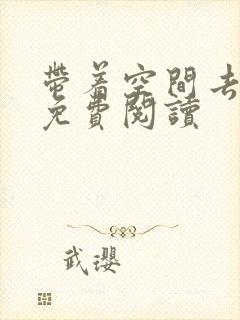 带着空間去
免費閱讀
武瓔